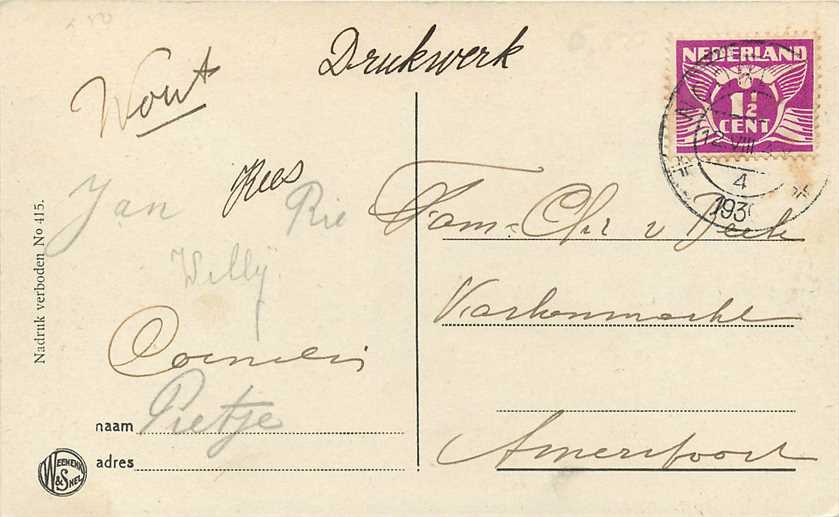 Drukwerk
Wout
Kees
Jan Rie
Willy
Cornelis
Pietje
naam
adres
Nadruk verboden No 415.
WEENENK
& SNEL
NEDERLAND
1½
CENT
12 VIII
4
193
Fam. Chr v Beek
Varkenmarkt
Amersfoort